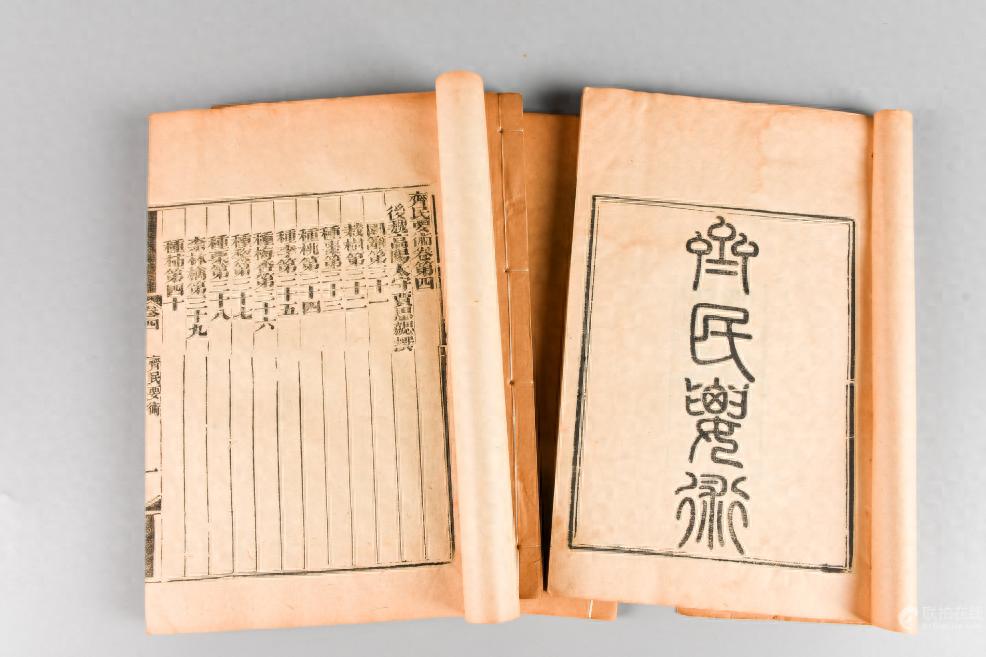 齊民要術
齊民要術卷第四
後魏高陽太守賈思勰撰
園籬第三十一
栽樹第三十二
種棗第三十三
種桃第三十四
種李第三十五
種梅杏第三十六
種梨第三十七
種栗第三十八
柰林檎第三十九
種柿第四十
卷四 齊民要術 一
联拍在线